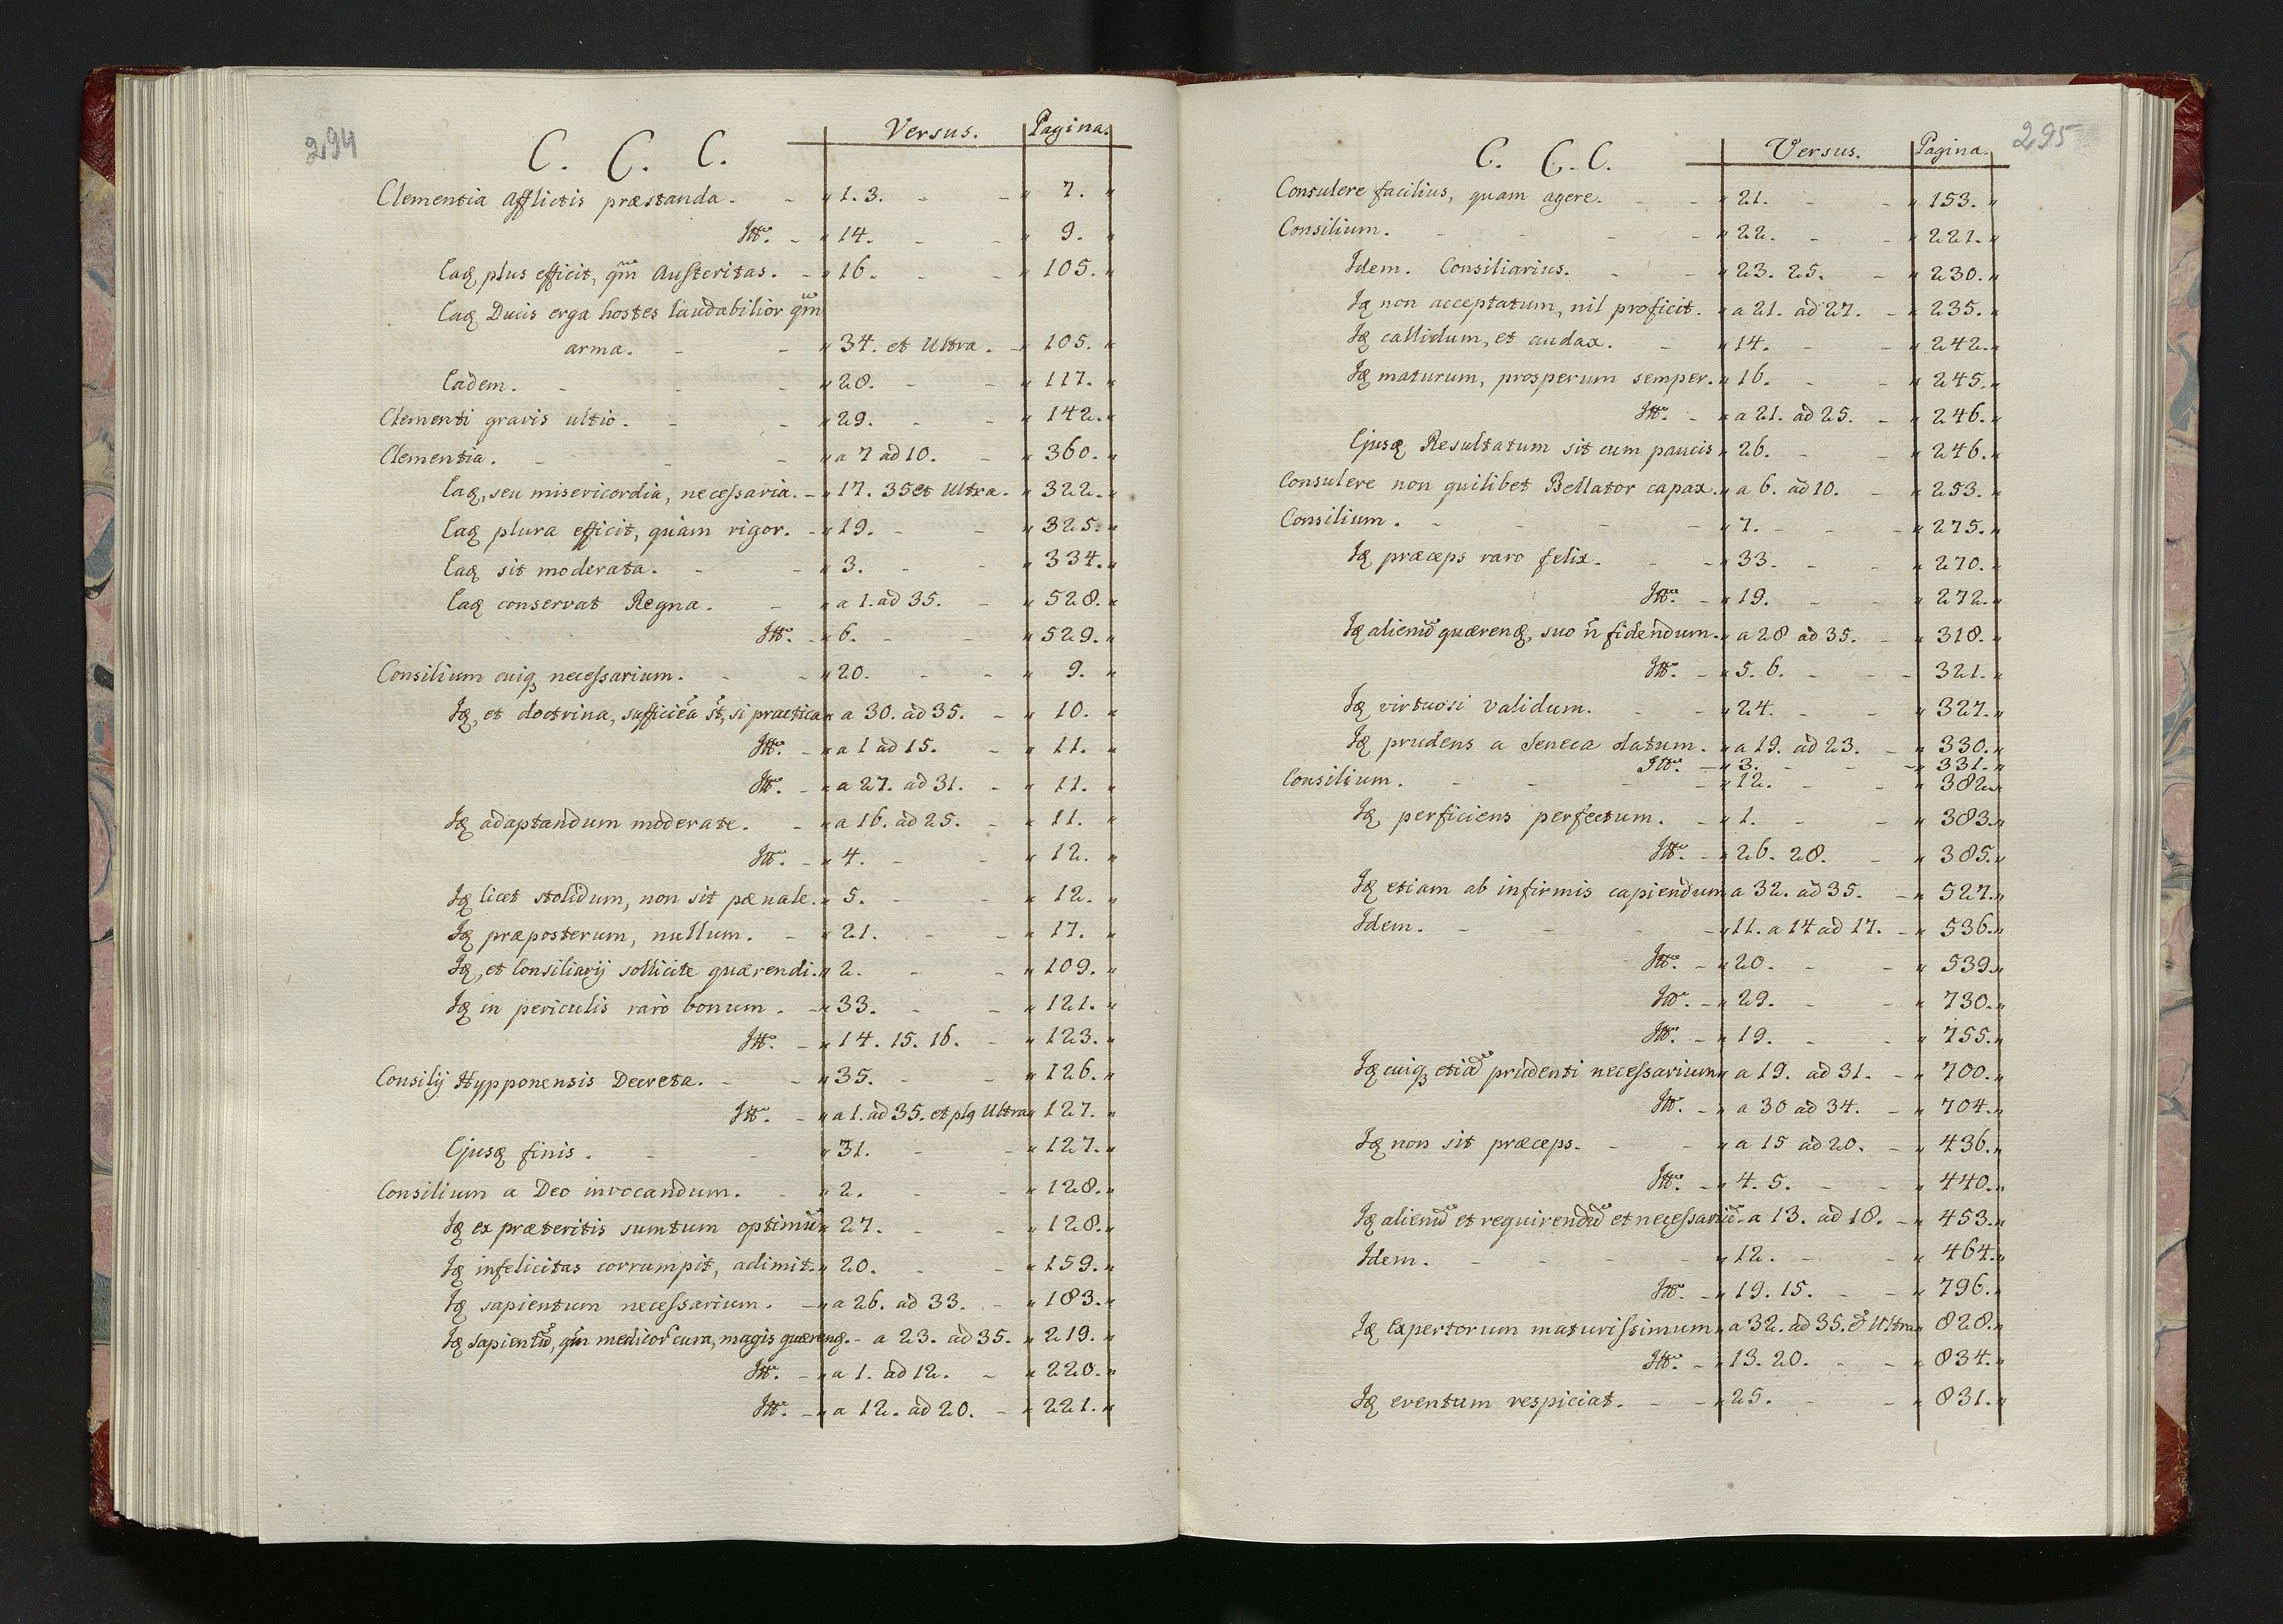 294
C. C. C. Versus. Pagina.
Clementia afflictis præstanda. - „ 1. 3. - - „ 7. „
Itt. - „ 14. - „ 9. „
Eaq plus efficit, qm̃ Austeritas. - „ 16. - „ 105. „
Eaq Ducis erga hostes laudabilior qm̃
arma. - - „ 34. et Ultra. - „ 105. „
Eadem. - - - „ 28. - - „ 117. „
Clementi gravis ultio. - - „ 29. - - „ 142. „
Clementia. - - - „ a 7 ad 10. - „ 360. „
Eaq, seu misericordia, necessaria. - „ 17. 35 et Ultra. „ 322. „
Eaq plura efficit, quàm rigor. - „ 19. - - „ 325. „
Eaq sit moderata. - - „ 3. - - „ 334. „
Eaq conservat Regna. - „ a 1. ad 35. - „ 528. „
Itt. - „ 6. - - „ 529. „
Consilium cuiq necessarium. - - „ 20. - - „ 9. „
Iq, et doctrina, sufficiẽa st̃, si practica „ a 30. ad 35. - „ 10. „
Itt. - „ a 1 ad 15. - „ 11. „
Itt. - „ a 27. ad 31. - „ 11. „
Iq adaptandum moderate. - „ a 16. ad 25. - „ 11. „
Itt. - „ 4. - - „ 12. „
Iq licet stolidum, non sit pænale. „ 5. - - „ 12. „
Iq præposterum, nullum. - „ 21. - - „ 17. „
Iq, et Consiliarij sollicite quærendi. „ 2. - - „ 109. „
Iq in periculis rarò bonum. - „ 33. - - „ 121. „
Itt. - „ 14. 15. 16. - „ 123. „
Consilij Hypponensis Decreta. - - „ 35. - - „ 126. „
Itt. - „ a 1. ad 35. et plq Ultra „ 127. „
Ejusq finis. - - „ 31. - - „ 127. „
Consilium a Deo invocandum. - „ 2. - - „ 128. „
Iq ex præteritis sumtum optimũ „ 27. - - „ 128. „
Iq infelicitas corrumpit, adimit. „ 20. - - „ 159. „
Iq sapientum necessarium. - „ a 26. ad 33. - „ 183. „
Iq sapientũ, qm̃ medicor cura, magis quærenq. - a 23. ad 35. „ 219. „
Itt. - „ a 1. ad 12. - „ 220. „
Itt. - „ a 12. ad 20. - „ 221. „
295
C. C. C. Versus. Pagina.
Consulere facilius, quam agere. - - „ 21. - - „ 153. „
Consilium. - - - „ 22. - - „ 221. „
Idem. Consiliarius. - - „ 23. 25. - „ 230. „
Iq non acceptatum, nil proficit. „ a 21. ad 27. - „ 235. „
Iq callidum, et audax. - „ 14. - - „ 242. „
Iq maturum, prosperum semper. „ 16. - - „ 245. „
Itt. - „ a 21. ad 25. - „ 246. „
Ejusq Resultatum sit cum paucis „ 26. - - „ 246. „
Consulere non quilibet Bellator capax. „ a 6. ad 10. - „ 253. „
Consilium. - - - - „ 7. - - - „ 275. „
Iq præceps raro felix. - - „ 33. - - „ 270. „
Itt. - „ 19. - - „ 272. „
Iq alienũ quærenq, suo ñ fidendum. „ a 28 ad 35. - „ 318. „
Itt. - „ 5. 6. - - „ 321. „
Iq virtuosi validum. - - „ 24. - - „ 327. „
Iq prudens a Seneca datum. „ a 19. ad 23. - „ 330. „
Itt. - „ 3. - - „ 331. „
Consilium. - - - - „ 12. - - „ 382. „
Iq perficiens perfectum. - „ 1. - - „ 383. „
Itt. - „ 26. 28. - „ 385. „
Iq etiam ab infirmis capiendum „ a 32. ad 35. - „ 527. „
Idem. - - - - „ 11. a 14 ad 17. - „ 536. „
Itt. - „ 20. - - „ 539. „
Itt. - „ 29. - - „ 730. „
Itt. - „ 19. - - „ 755. „
Iq cuiq etiã prudenti necessarium „ a 19. ad 31. - „ 700. „
Itt. - „ a 30 ad 34. - „ 704. „
Iq non sit præceps. - - „ a 15 ad 20. - „ 436. „
Itt. - „ 4. 5. - - „ 440. „
Iq alienũ et requirendũ et necessariũ. a 13. ad 18. - „ 453. „
Idem. - - - - „ 12. - - „ 464. „
Itt. - „ 19. 15. - - „ 796. „
Iq Expertorum maturissimum „ a 32. ad 35. & Ultra „ 828. „
Itt. - „ 13. 20. - - „ 834. „
Iq eventum respiciat. - - „ 25. - - „ 831. „